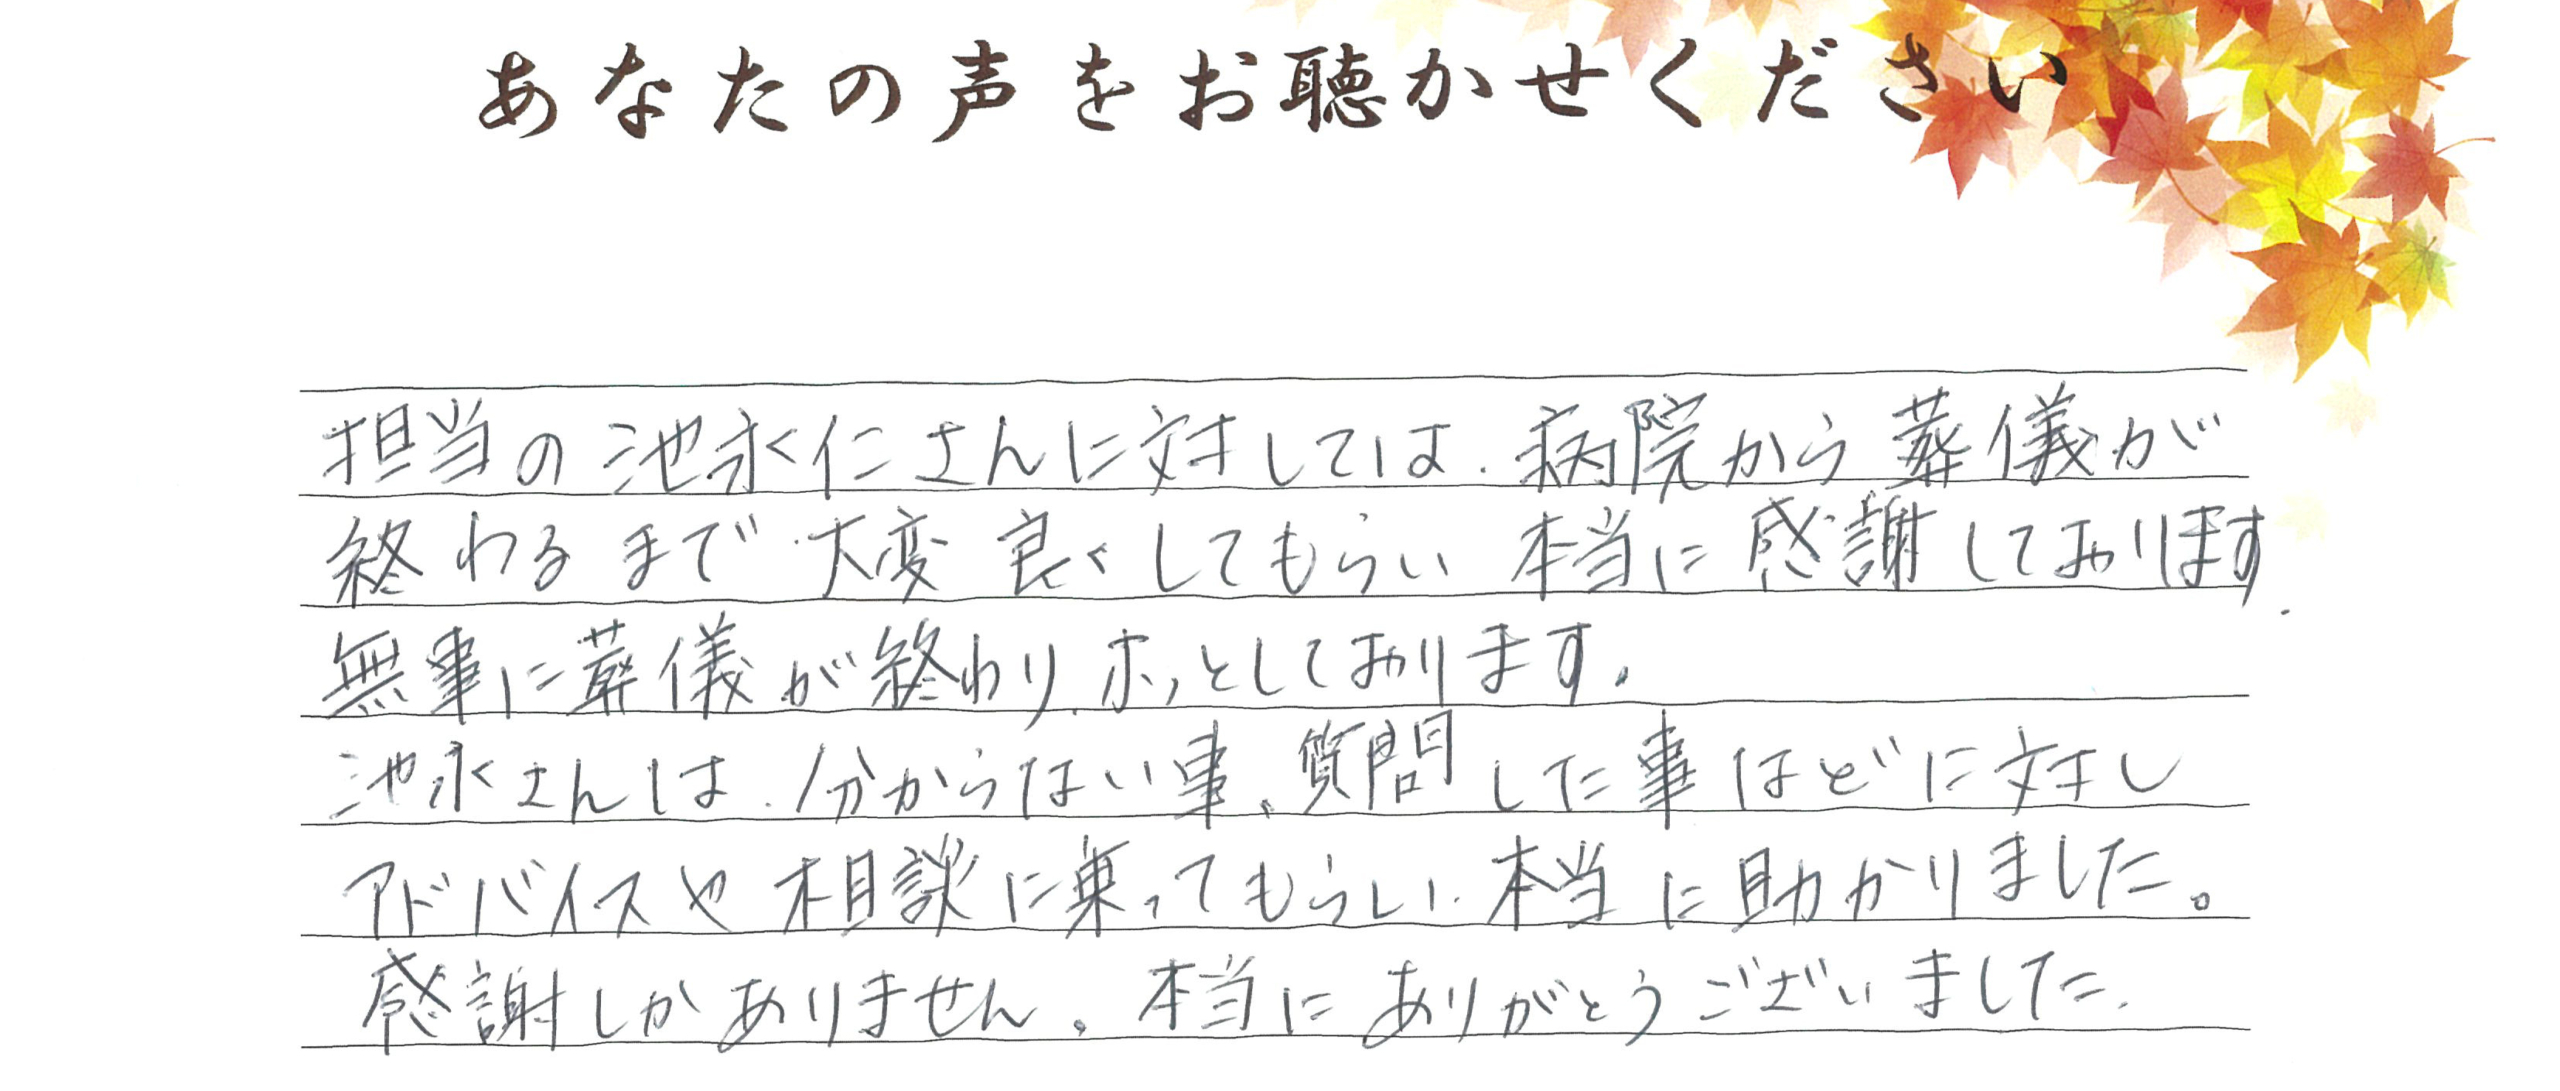 あなたの声をお聴かせください
担当の池永仁さんに対しては、病院から葬儀が
終わるまで大変良くしてもらい本当に感謝しております.
無事に葬儀が終わり、ホッとしております.
池永さんは、分からない事、質問した事などに対し
アドバイスや相談に乗ってもらい、本当に助かりました。
感謝しかありません。本当にありがとうございました.